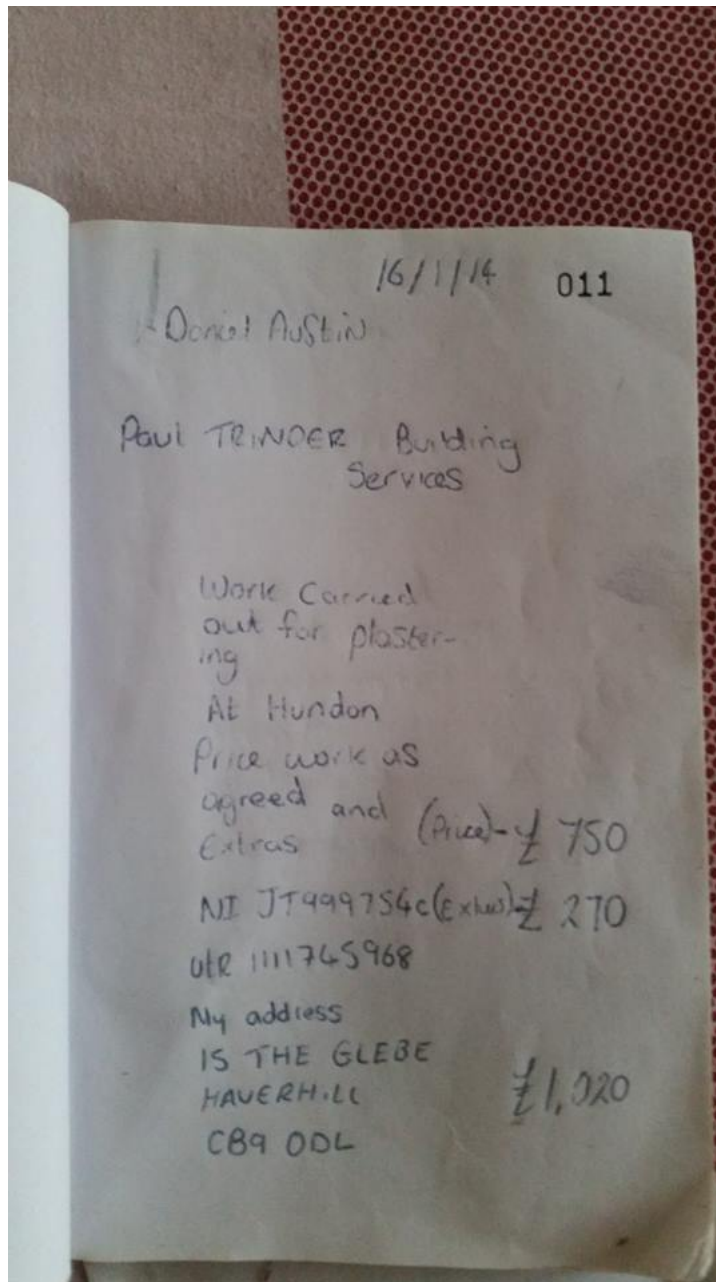 16/1/14 011
Daniel Austin
Paul TRINDER Building
Services
Work Carried
out for plaster-
ing
At Hundon
Price work as
agreed and (Price)-£ 750
Extras
NI JT999754c (Extras)-£ 270
UtR 1111745968
My address
IS THE GLEBE
HAVERHILL £1,020
CB9 0DL